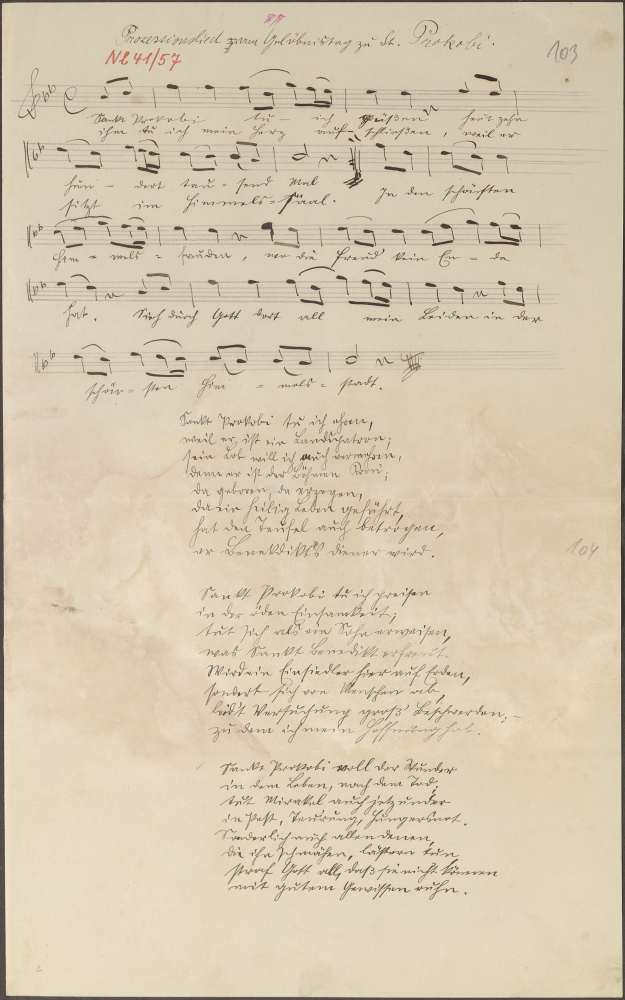 Prozessionslied zum Gelöbnistag zu St. Prokobi.
103
Nl 41/57
Sankt Prokobi tu - ich preisen heut zehn
ihm tu ich mein Herz auf - schließen, weil er
hun - dert tau - send Mal In den schönsten
sitzt im Himmels - saal.
Him - mels - freuden, wo die Freud kein En - de
hat. Sieh durch Gott dort all mein Leiden in der
schön - sten Him - mels - stadt.
Sankt Prokobi tu ich ehren,
weil er ist ein Landspatron;
sein Lob will ich auch vermehren,
denn er ist der Böhmen Kron;
da geboren, da erzogen,
da ein heilig Leben geführt,
hat den Teufel auch betrogen,
er Benedikts Diener wird.
104
Sankt Prokobi tu ich preisen
in der öden Einsamkeit;
tut sich als ein Sohn erweisen,
was Sankt Benedikt erfreut.
Wird ein Einsiedler hier auf Erden,
sondert sich von Menschen ab,
Versuchung groß' Beschwerden, -
zu dem ich mein Hoffnung hab.
Sankt Prokobi voll der Wunder
in dem Leben, nach dem Tod;
tut Mirakel auch jetzunder
in Pest, Teurung, Hungersnot.
Sonderlich auch allen denen,
die ihn schmähen, lästern tun,
straf Gott all, daß sie nicht können
mit gutem Gewissen ruhn.